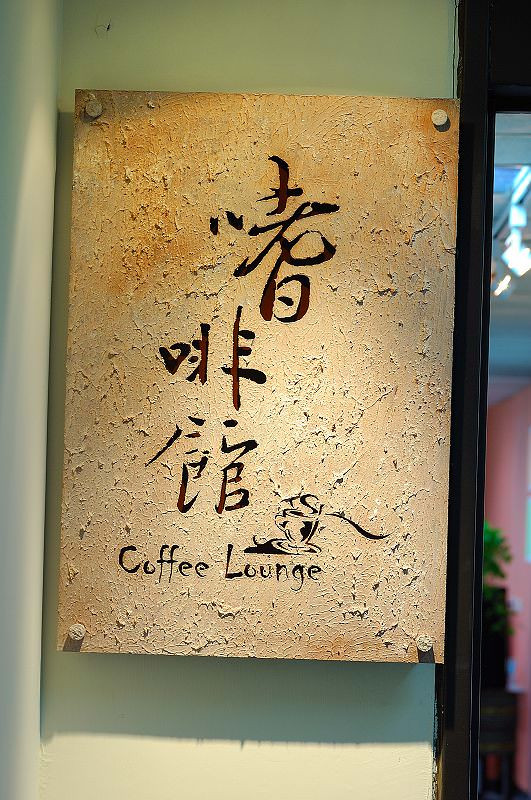 嗜
啡
館
Coffee Lounge